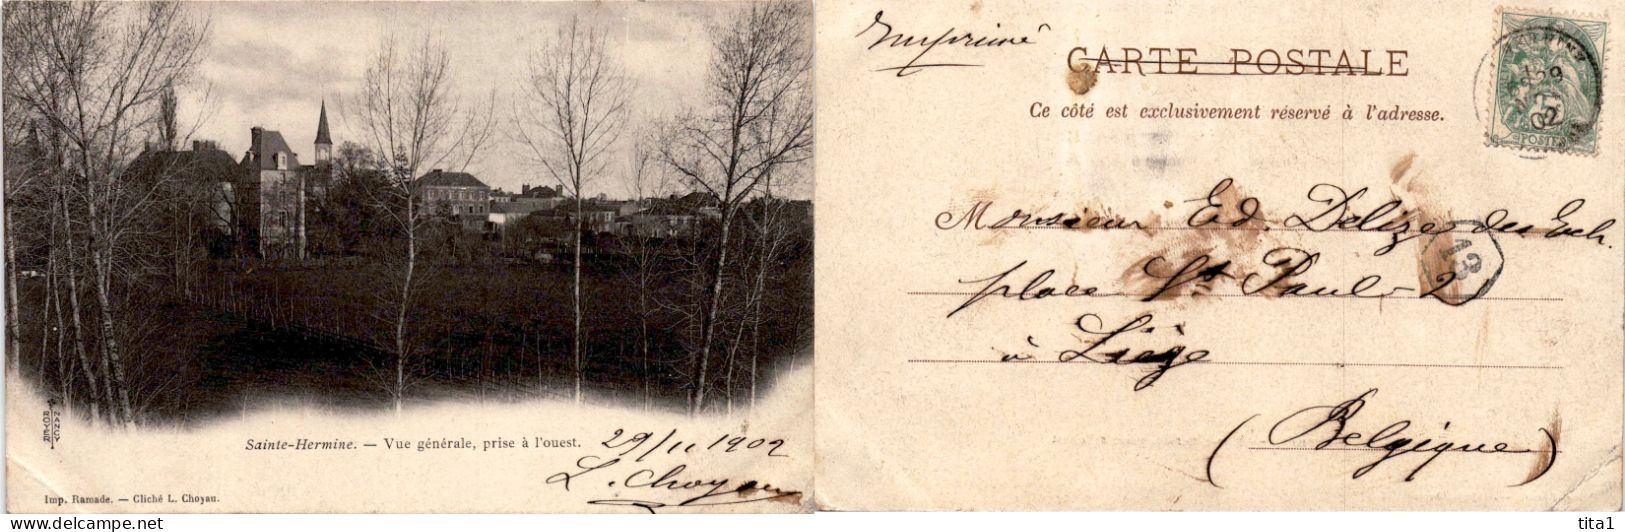 Sainte-Hermine. — Vue générale, prise à l'ouest.
29/11 1902
L. Choyau
Imp. Ramade. — Cliché L. Choyau.
ROYER
NANCY
Imprimé
CARTE POSTALE
Ce côté est exclusivement réservé à l'adresse.
29
02
POSTES
Monsieur Ed. Delize des Ech.
place St Paul - 2
13
à Liège
(Belgique)
tita1